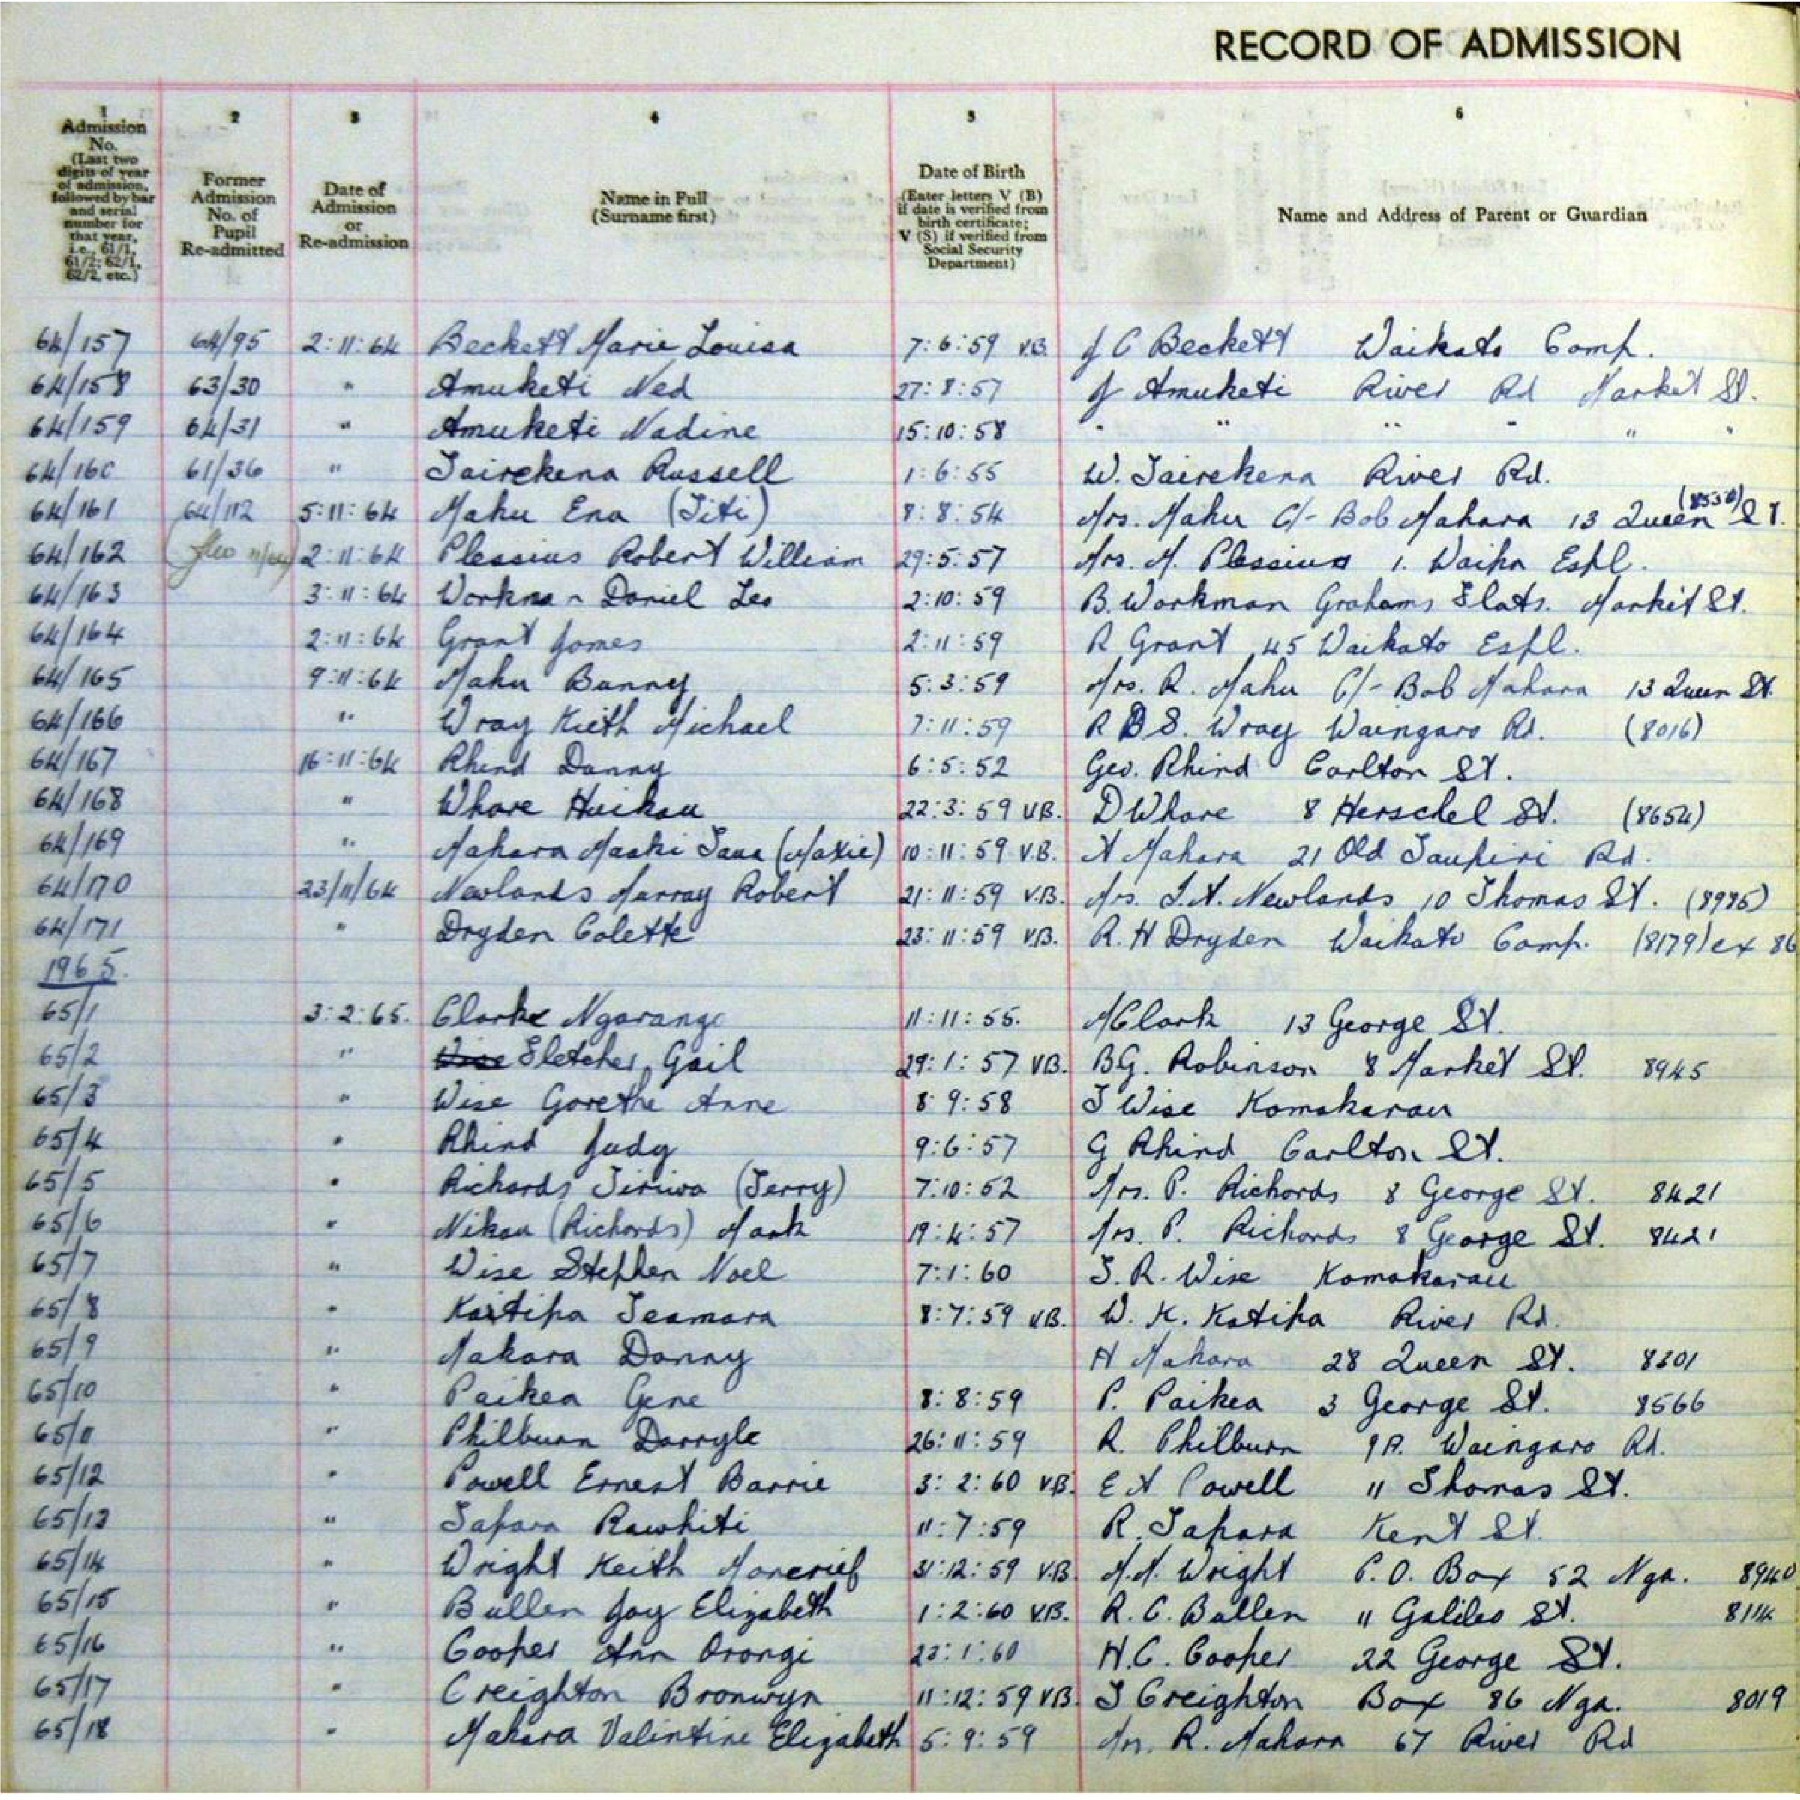 RECORD OF ADMISSION
1 2 3 4 5 6
Admission No. (Last two digits of year of admission, followed by bar and serial number for that year, i.e., 61/1, 61/2; 62/1, 62/2, etc.)
Former Admission No. of Pupil Re-admitted
Date of Admission or Re-admission
Name in Full (Surname first)
Date of Birth (Enter letters V (B) if date is verified from birth certificate; V (S) if verified from Social Security Department)
Name and Address of Parent or Guardian
64/157 64/95 2:11:64 Beckett Marie Louisa 7:6:59 V.B. J C Beckett Waikato Comp.
64/158 63/30 " Amuketi Ned 27:8:57 J Amuketi River Rd Market St.
64/159 64/31 " Amuketi Nadine 15:10:58 " " " " " "
64/160 61/36 " Tairekena Russell 1:6:55 W. Tairekena River Rd.
64/161 64/112 5:11:64 Mahu Ena (Titi) 8:8:54 Mrs. Mahu C/- Bob Mahara 13 Queen St. (8530)
64/162 2:11:64 Plessius Robert William 29:5:57 Mrs. M. Plessius 1. Waika Espl.
64/163 3:11:64 Workman Daniel Leo 2:10:59 B. Workman Grahams Flats. Market St.
64/164 2:11:64 Grant James 2:11:59 R Grant 45 Waikato Espl.
64/165 9:11:64 Mahu Bunny 5:3:59 Mrs. R. Mahu C/- Bob Mahara 13 Queen St.
64/166 " Wray Kieth Michael 7:11:59 R B S. Wray Waingaro Rd. (8016)
64/167 16:11:64 Rhind Danny 6:5:52 Geo. Rhind Carlton St.
64/168 " Whare Huikau 22:3:59 V.B. D Whare 8 Herschel St. (8654)
64/169 " Mahara Maaki Taua (Maxie) 10:11:59 V.B. H Mahara 21 Old Taupiri Rd.
64/170 23/11/64 Newlands Murray Robert 21:11:59 V.B. Mrs. I.M. Newlands 10 Thomas St. (8985)
64/171 " Dryden Colette 23:11:59 V.B. R. H Dryden Waikato Comp. (8179) ex 86
1965.
65/1 3:2:65. Clarke Ngarangi 11:11:55. M Clark 13 George St.
65/2 " Wise Fletcher Gail 29:1:57 V.B. B.G. Robinson 8 Market St. 8945
65/3 " Wise Gorethe Anne 8 9:58 T Wise Komakarau
65/4 " Rhind Judy 9:6:57 G Rhind Carlton St.
65/5 " Richards Tiriwa (Terry) 7:10:52 Mrs. P. Richards 8 George St. 8421
65/6 " Nikau (Richards) Mark 19:4:57 Mrs. P. Richards 8 George St. 8421
65/7 " Wise Stephen Noel 7:1:60 T. R. Wise Komakarau
65/8 " Katipa Teamara 8:7:59 V.B. W. K. Katipa River Rd.
65/9 " Mahara Danny H Mahara 28 Queen St. 8301
65/10 " Paikea Gene 8:8:59 P. Paikea 3 George St. 8566
65/11 " Philburn Darryle 26:11:59 R. Philburn 9A. Waingaro Rd.
65/12 " Powell Ernest Barrie 3:2:60 V.B. E A Powell 11 Thomas St.
65/13 " Tapara Rawhiti 11:7:59 R. Tapara Kent St.
65/14 " Wright Keith Moncrief 31:12:59 V.B. M.M. Wright P.O. Box 52 Nga. 8940
65/15 " Bullen Joy Elizabeth 1:2:60 V.B. R. C. Bullen 11 Galileo St. 8114
65/16 " Cooper Ann Orongi 23:1:60 H.C. Cooper 22 George St.
65/17 " Creighton Bronwyn 11:12:59 V.B. T Creighton Box 86 Nga. 8019
65/18 " Mahara Valentine Elizabeth 5:9:59 Mrs. R. Mahara 67 River Rd